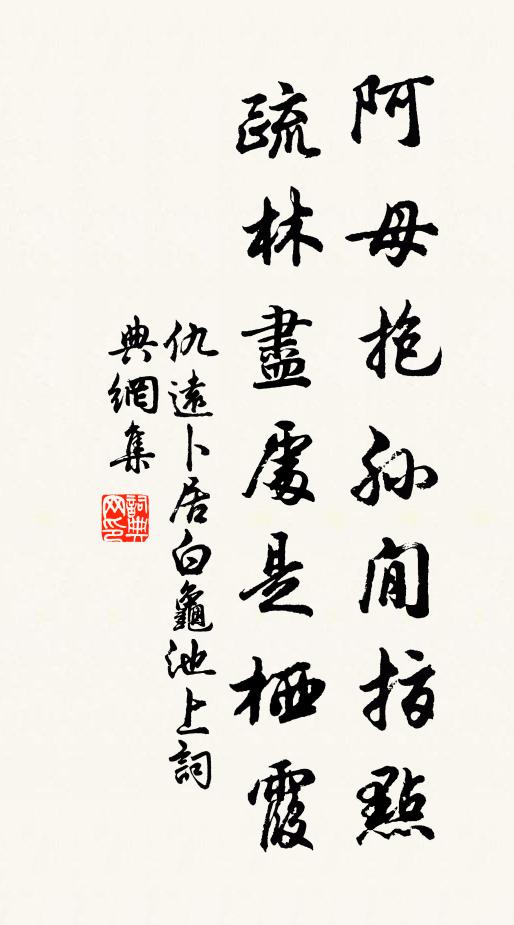 阿母抱孫閒指點
疏林盡處是栖霞
仇遠卜居白龜池上詞
典網集
詞典网印